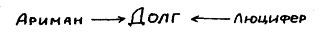 Ариман → Долг ← Люцифер